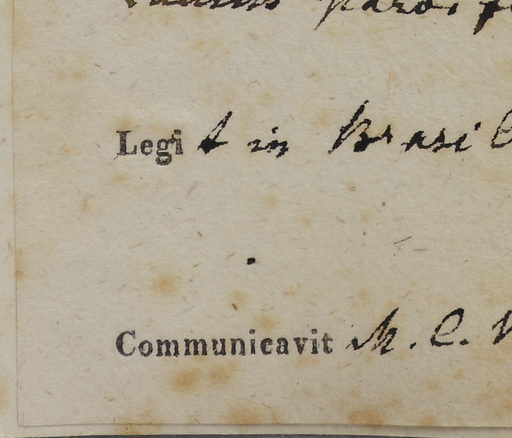 Legit in Brasil
Communicavit M. C.